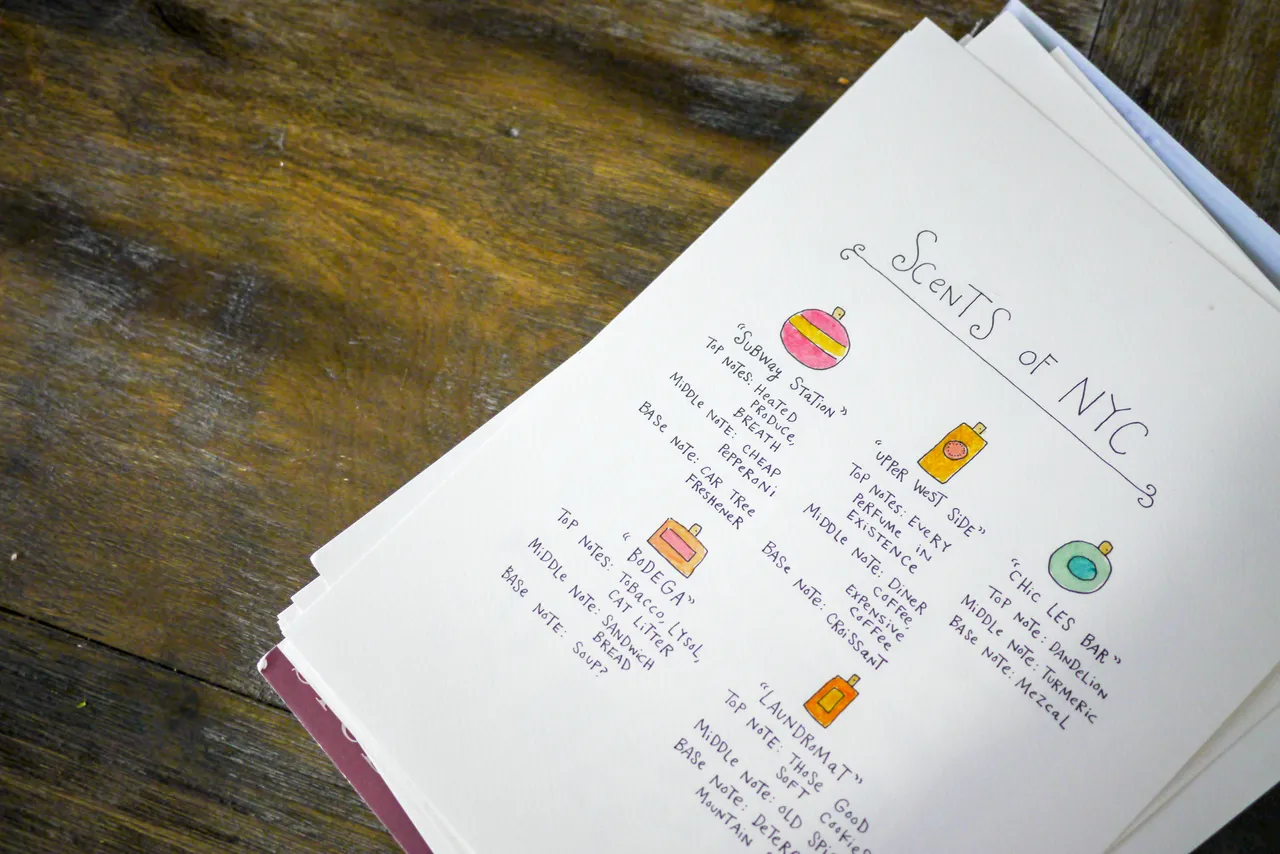 ScenTS oF NYC
"SUBWAY STATION"
TOP NOTES: HEATED
PRODUCE,
BREATH
MIDDLE NOTE: CHEAP
PEPPERONI
BASE NOTE: CAR TREE
FRESHENER
"UPPER WEST SIDE"
TOP NOTES: EVERY
PERFUME IN
EXISTENCE
MIDDLE NOTE: DINER
COFFEE,
EXPENSIVE
COFFEE
BASE NOTE: CROISSANT
"CHIC LES BAR"
TOP NOTE: DANDELION
MIDDLE NOTE: TURMERIC
BASE NOTE: MEZCAL
"BODEGA"
TOP NOTES: TOBACCO, LYSOL,
CAT LITTER
MIDDLE NOTE: SANDWICH
BREAD
BASE NOTE: SOUP?
"LAUNDROMAT"
TOP NOTE: THOSE GOOD
SOFT COOKIES
MIDDLE NOTE: OLD
BASE NOTE:
MOUNTAIN